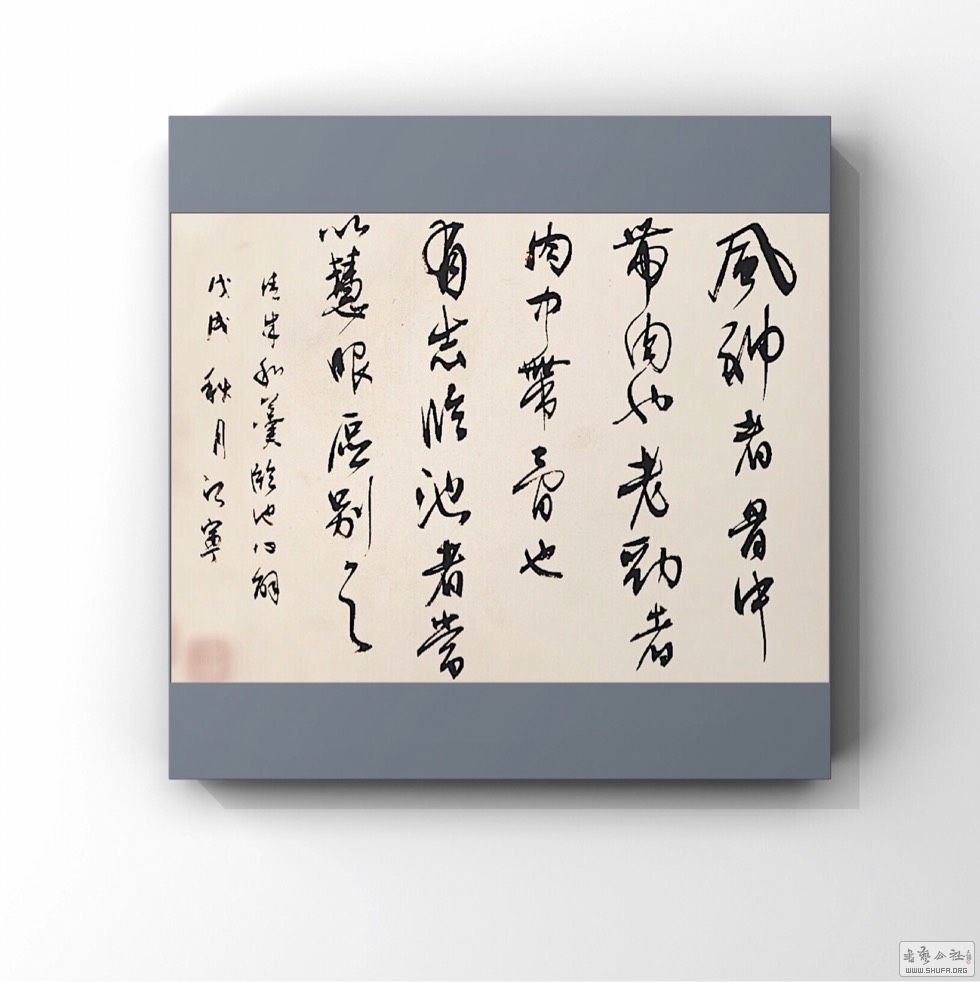 風神者骨中
帶肉也老勁者
肉中帶骨也
有志臨池者當
以慧眼區別之
清朱和羹臨池心解
戊戌秋月江寧
書藝公社
WWW.SHUFA.ORG